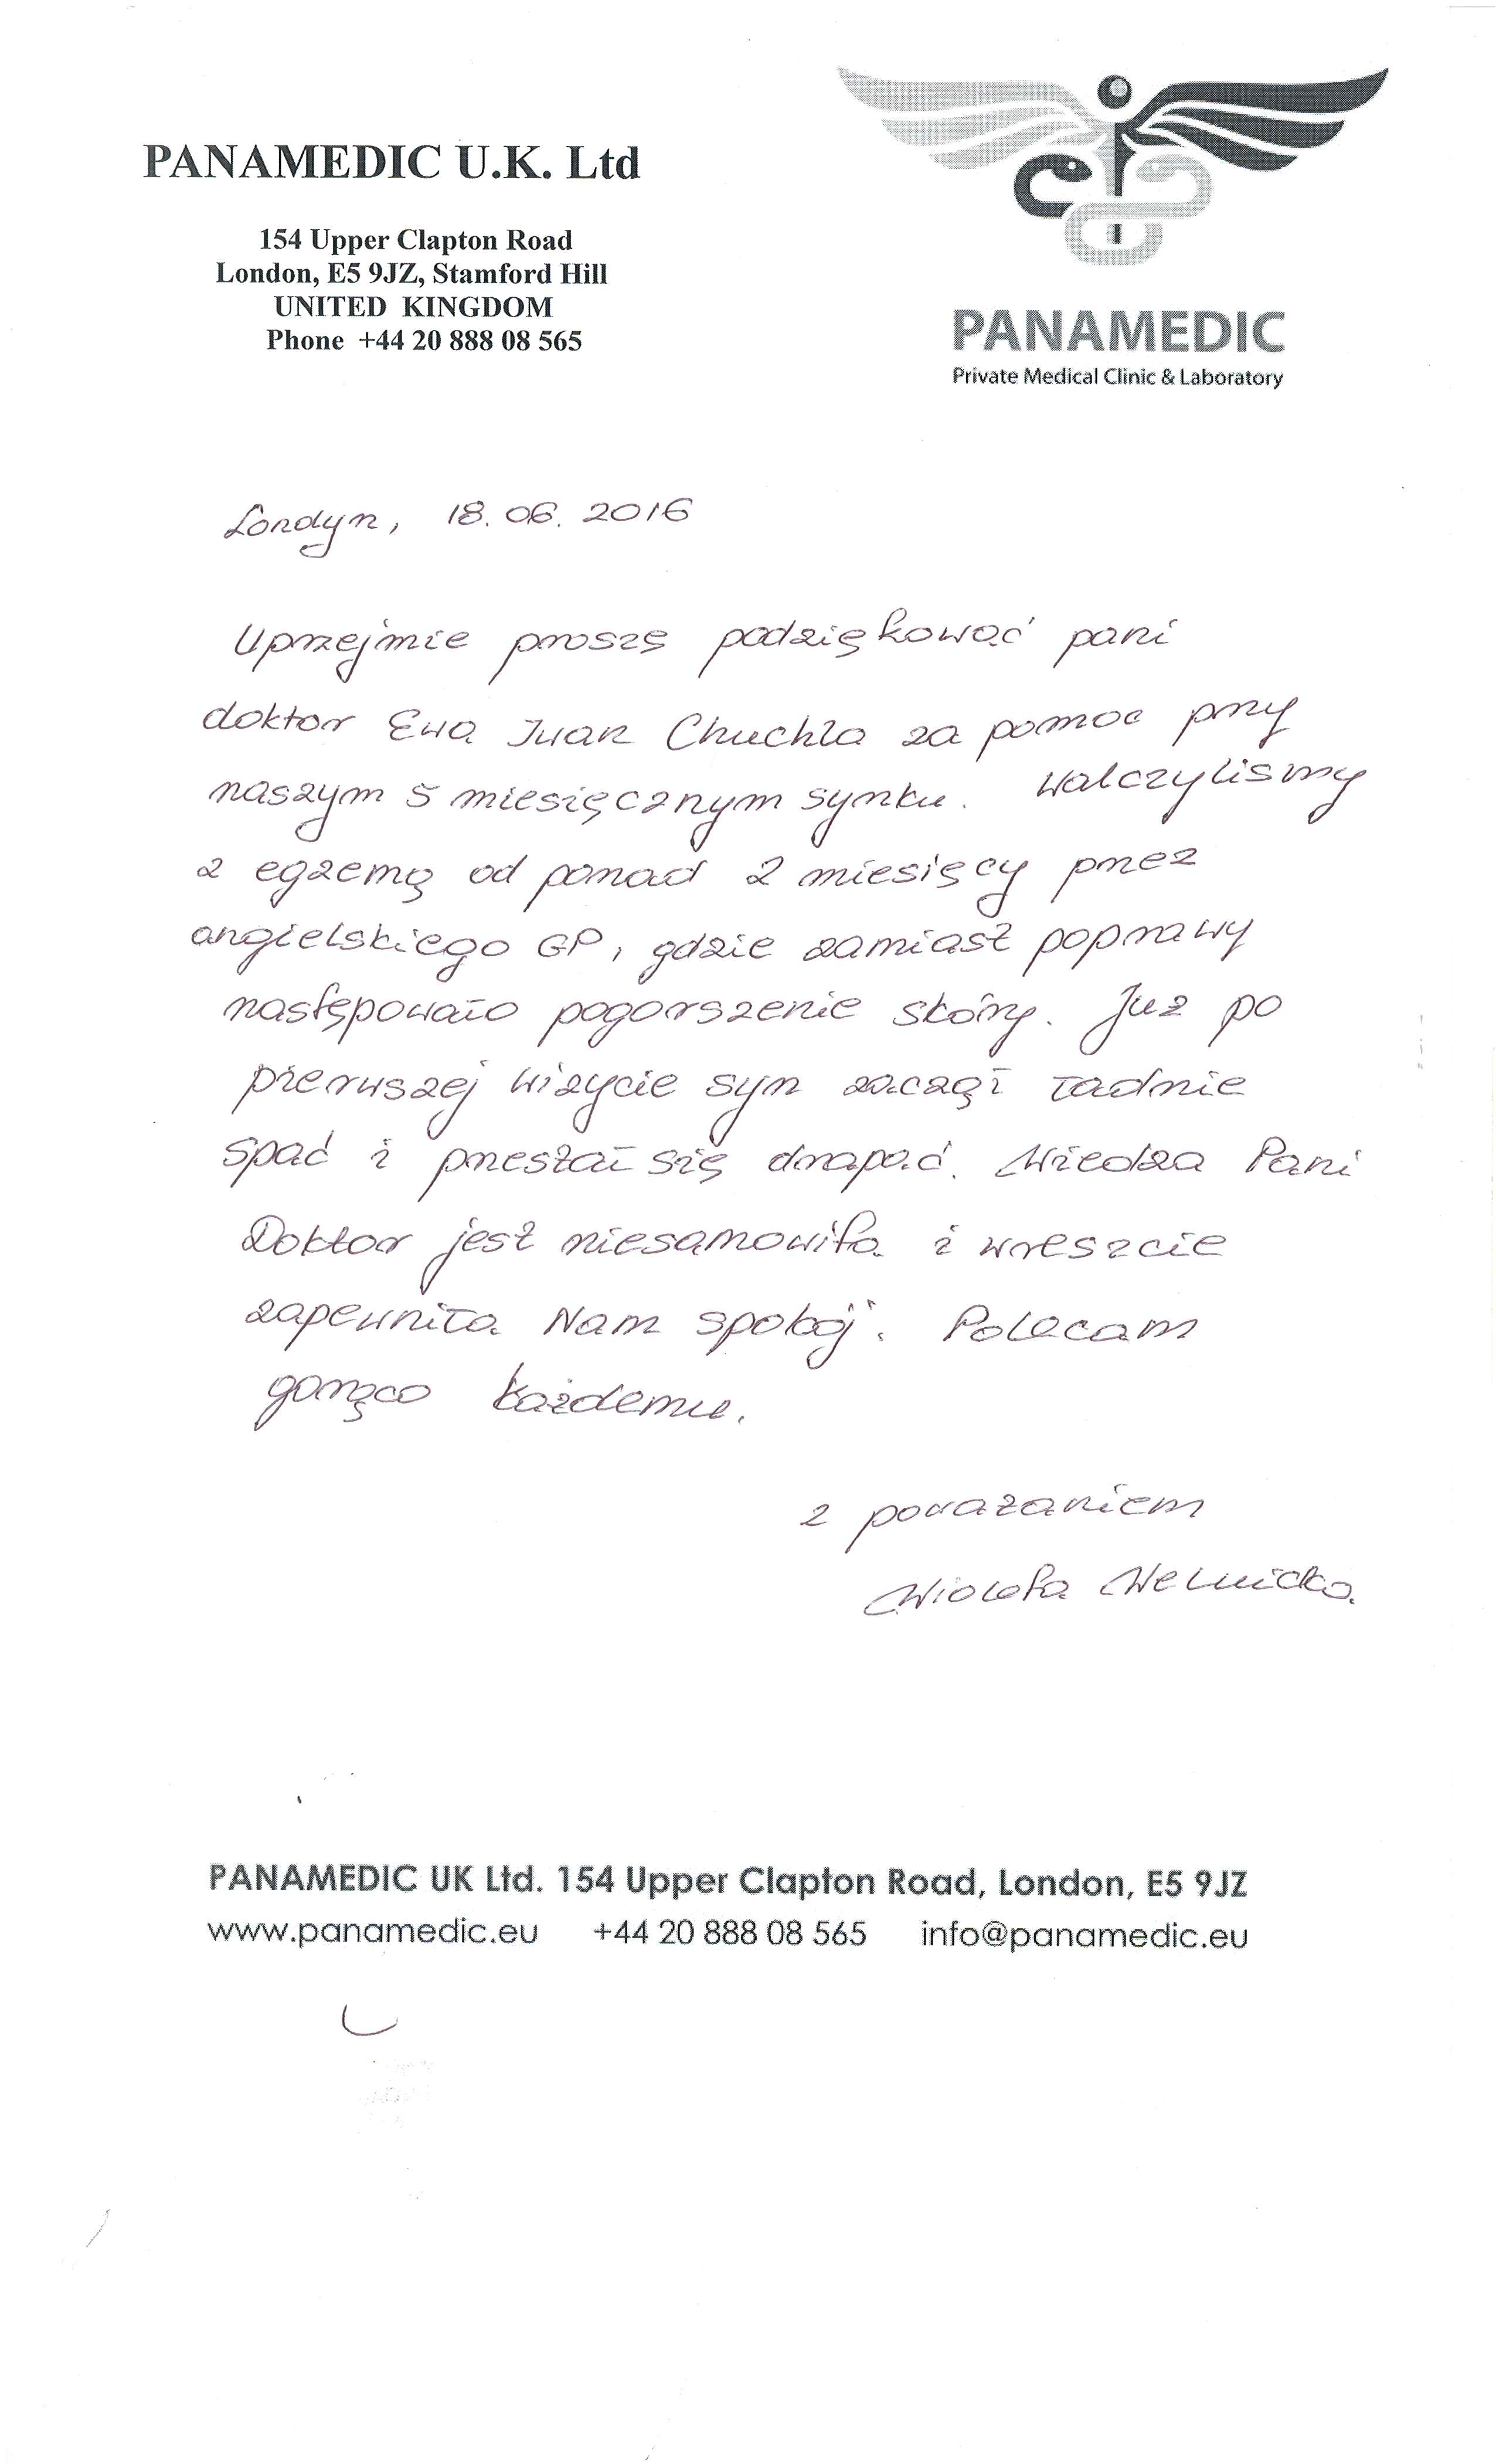 PANAMEDIC U.K. Ltd
154 Upper Clapton Road
London, E5 9JZ, Stamford Hill
UNITED KINGDOM
Phone +44 20 888 08 565
PANAMEDIC
Private Medical Clinic & Laboratory
Londyn, 18.06.2016
Uprzejmie proszę podziękować pani
doktor Ewa Iwan Chuchla za pomoc przy
naszym 5 miesięcznym synku. Walczylismy
z egzemą od ponad 2 miesięcy przez
angielskiego GP, gdzie zamiast poprawy
następowało pogorszenie skóry. Już po
pierwszej wizycie syn zaczął ładnie
spać i przestał się drapać. Wiedza Pani
Doktor jest niesamowita i wreszcie
zapewniła Nam spokój. Polecam
gorąco każdemu.
z poważaniem
Wioleta
PANAMEDIC UK Ltd. 154 Upper Clapton Road, London, E5 9JZ
www.panamedic.eu +44 20 888 08 565 info@panamedic.eu